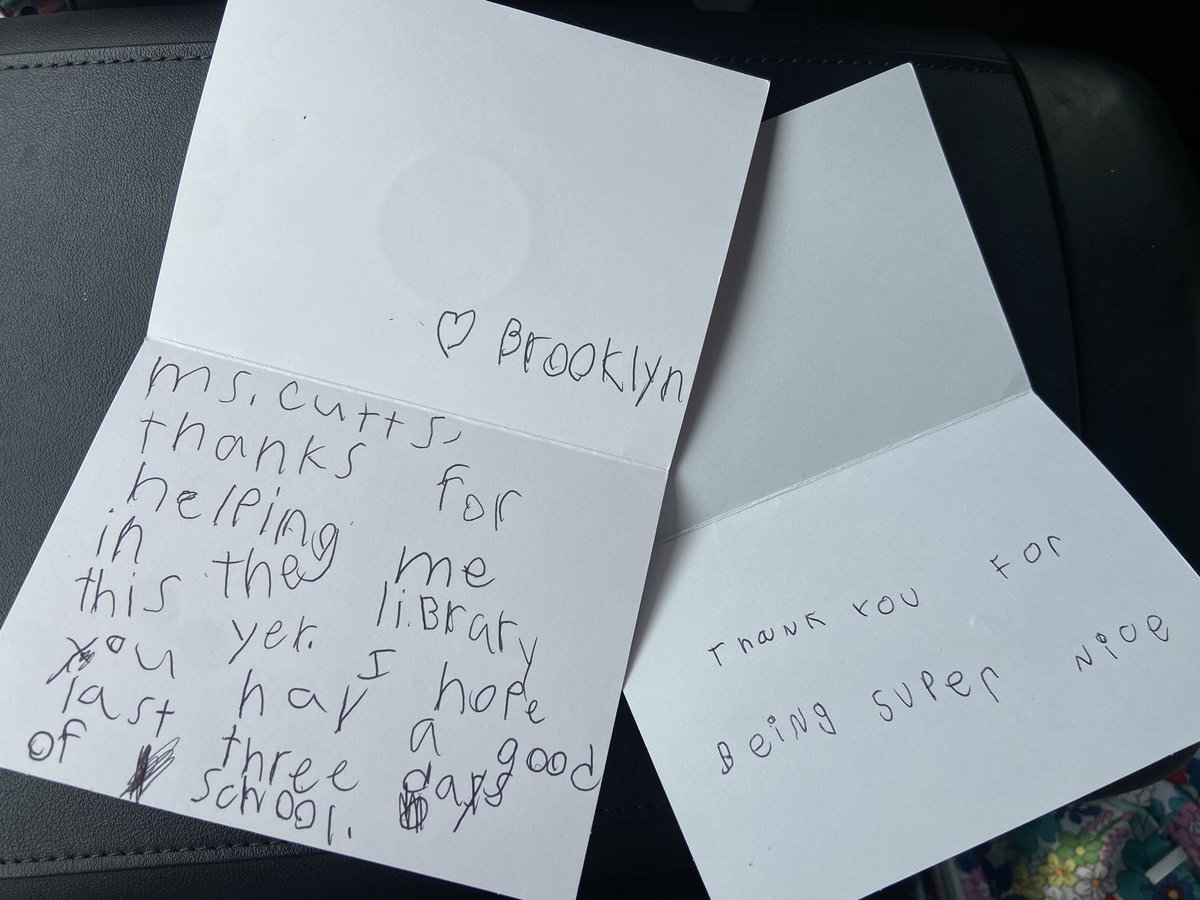 ♡ Brooklyn
ms. cutts,
thanks for
helping me
in the liBrary
this yer. I hope
you hav a good
last three days
of school.
THANK YOU FOR
BeiNg SUPer Nice